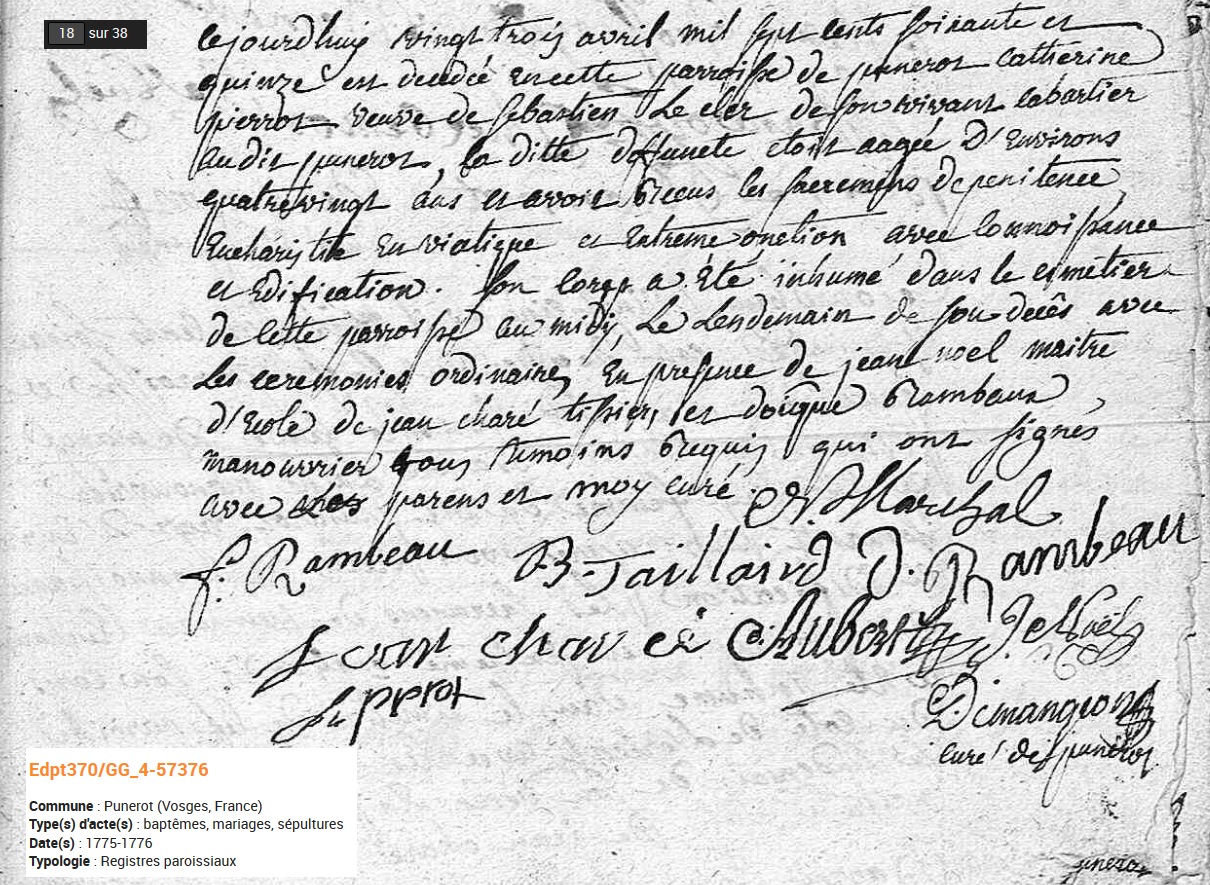 18 sur 38
Cejourdhuy vingt trois avril mil sept cents soixante et
quinze est decedée en cette parroisse de punerot Catherine
pierrot veuve de Sebastien Le cler de son vivant cabartier
audit punerot, la ditte deffunete etoit aagée D'Environs
quatrevingt ans et avoir Receus les sacremens de penitence,
Eucharistie En viatique et Extreme onction avec Connoissance
et Edification. Son Corps a Eté inhumé dans le cimetier
de Cette parroisse au midy, Le Lendemain de son decês avec
Les ceremonies ordinaires, En presence de jean noel maitre
d'Ecole de jean charé tissier, et doique Rambeaux,
manouvrier tous temoins Requis qui ont signés
avec les parens et moy curé. N. Marchal
f. Rambeau B. Taillaird D. Rambeau
jean charé C. Aubertin J. Noël
pprot
D. Demangeon
Curé de punerot
Edpt370/GG_4-57376
Commune : Punerot (Vosges, France)
Type(s) d'acte(s) : baptêmes, mariages, sépultures
Date(s) : 1775-1776
Typologie : Registres paroissiaux